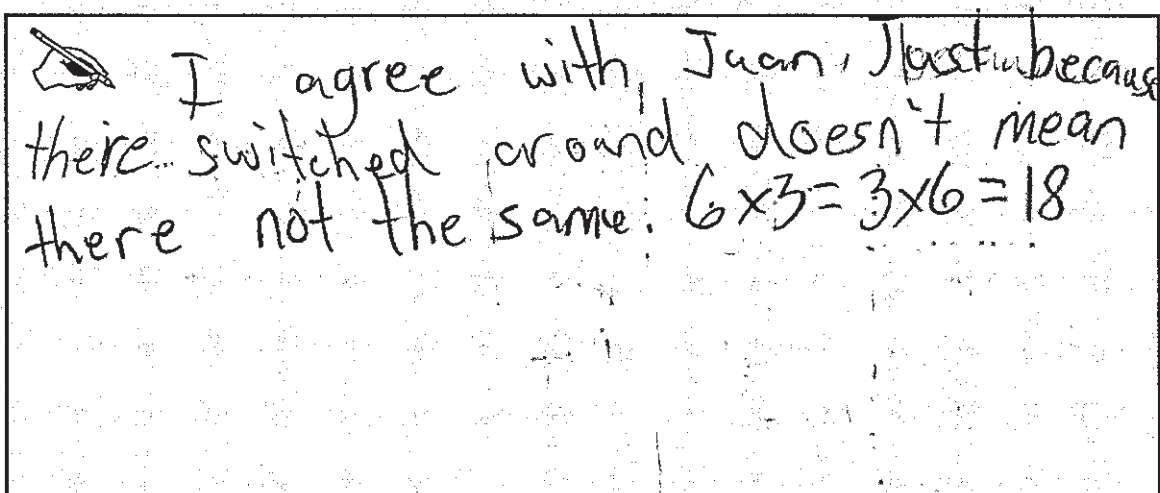 I agree with, Juan, Just because
there switched around doesn't mean
there not the same. 6x3=3x6=18